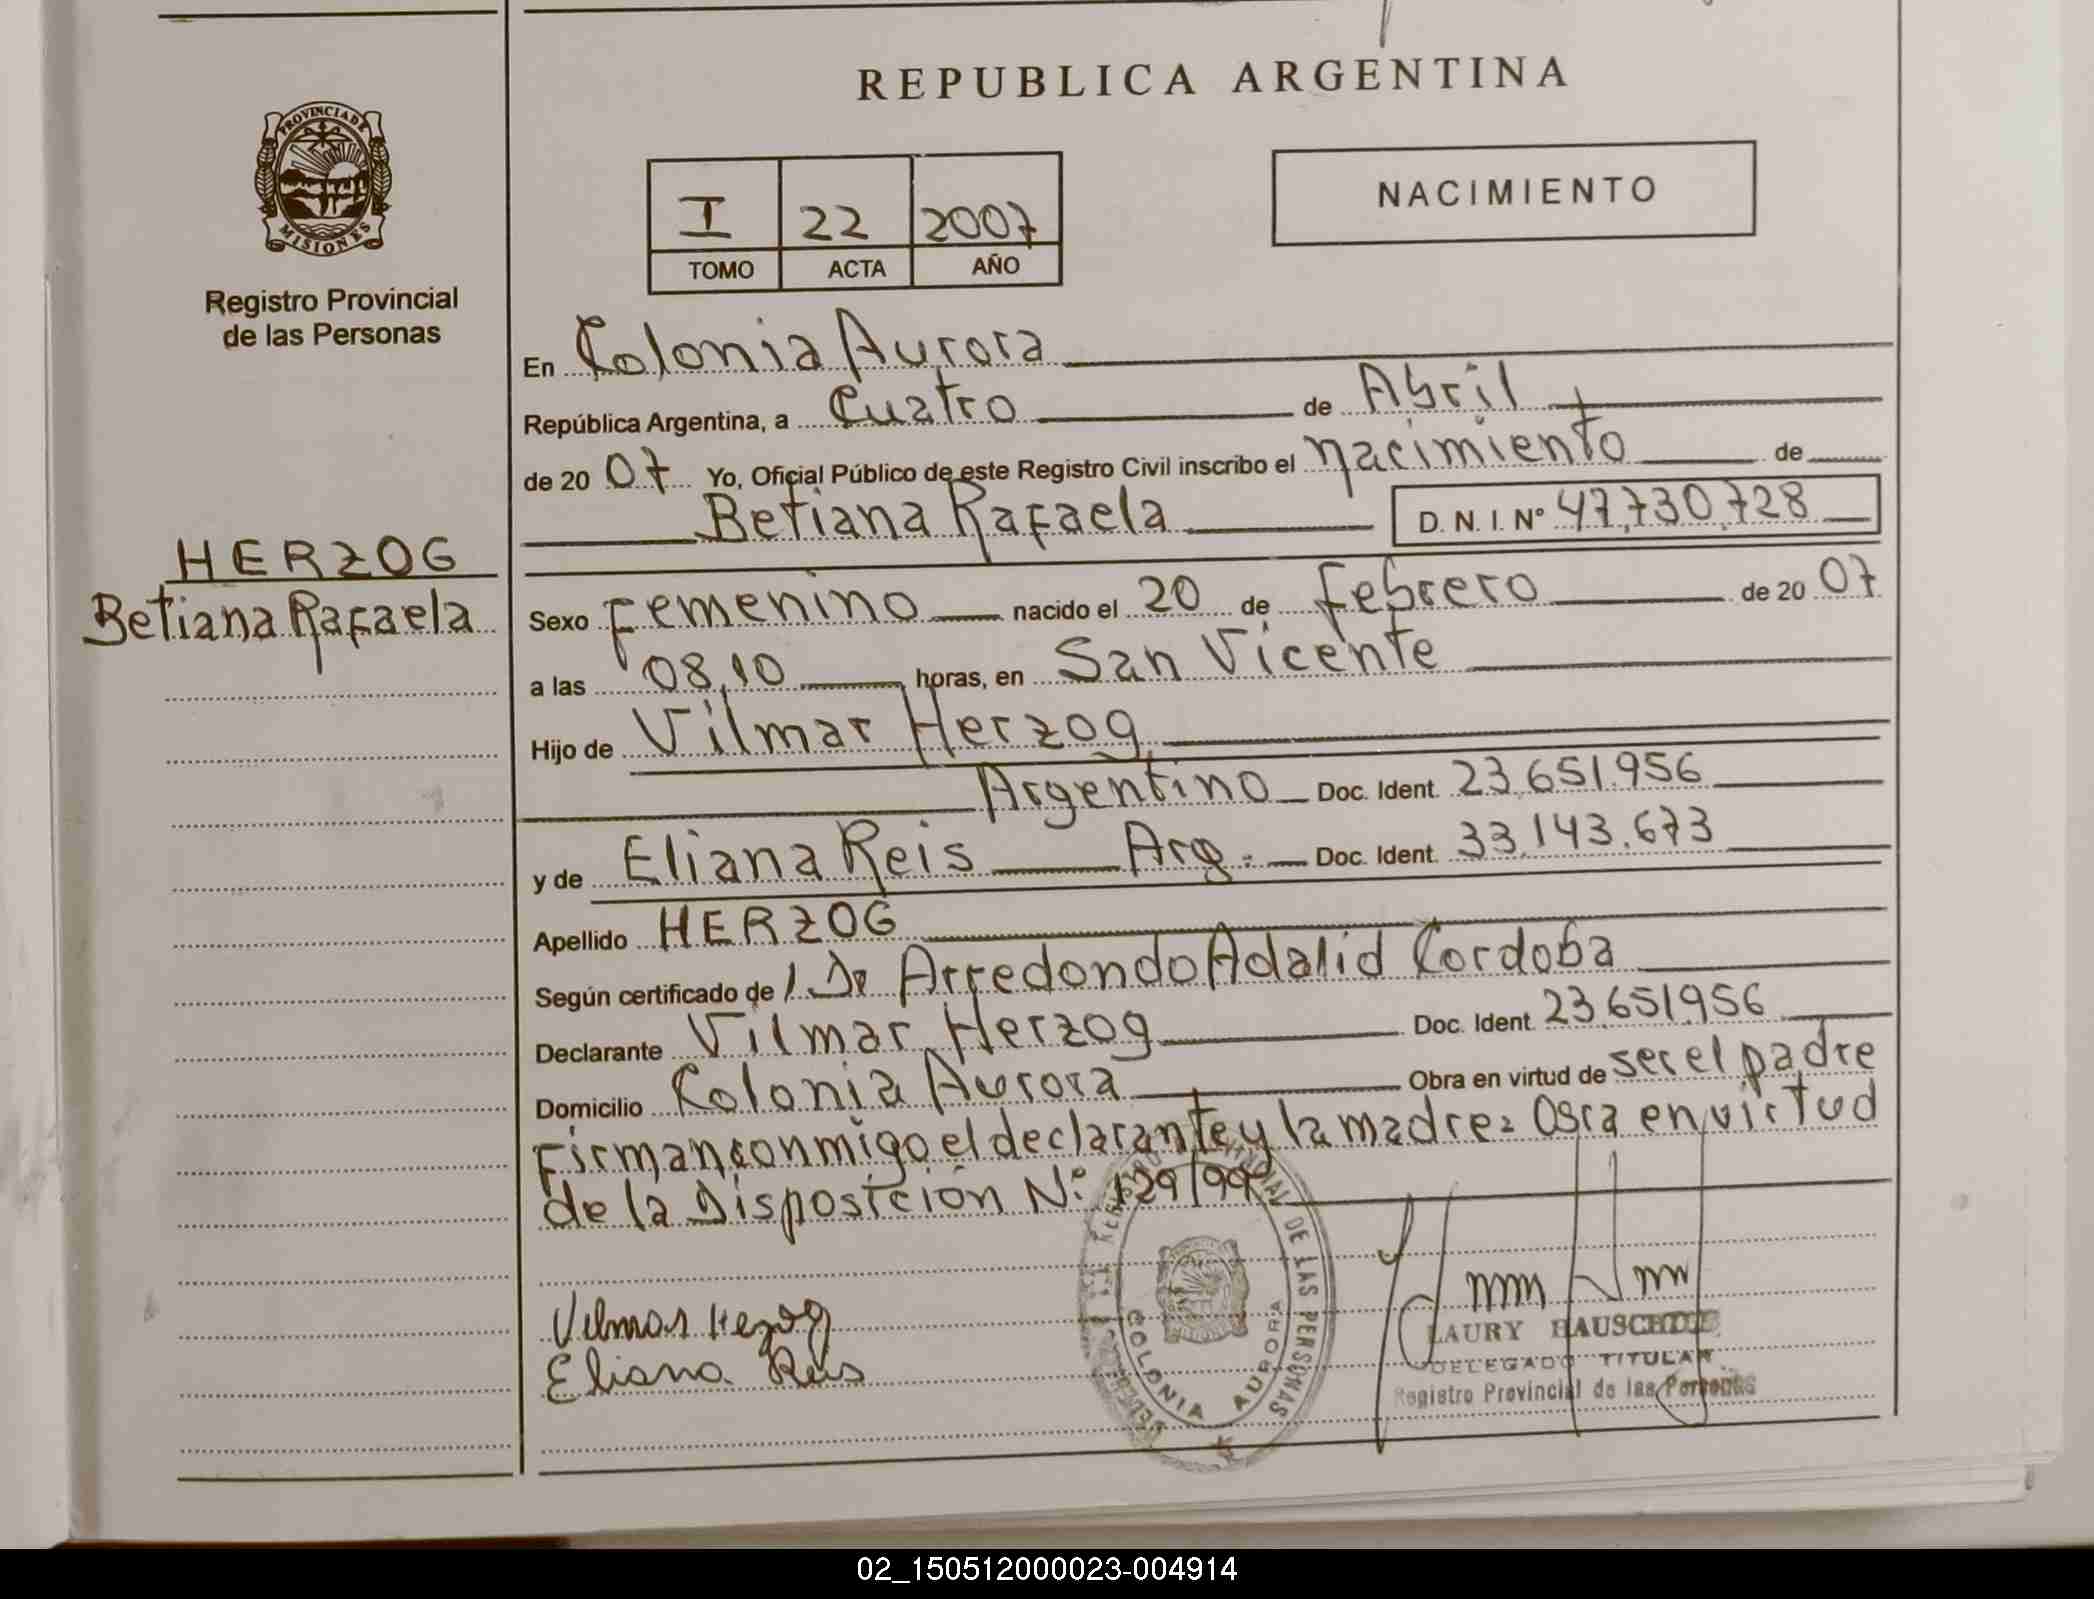 REPUBLICA ARGENTINA
PROVINCIA DE
MISIONES
Registro Provincial
de las Personas
I 22 2007
TOMO ACTA AÑO
NACIMIENTO
En Colonia Aurora
República Argentina, a Cuatro de Abril
de 20 07 Yo, Oficial Público de este Registro Civil inscribo el nacimiento de
Betiana Rafaela D. N. I. Nº 47,730,728
HERZOG
Betiana Rafaela
Sexo Femenino nacido el 20 de Febrero de 20 07
a las 08,10 horas, en San Vicente
Hijo de Vilmar Herzog
Argentino Doc. Ident. 23.651.956
y de Eliana Reis Arg. Doc. Ident. 33.143.673
Apellido HERZOG
Según certificado de Arredondo Adalid Cordoba
Declarante Vilmar Herzog Doc. Ident. 23.651956
Domicilio Colonia Aurora Obra en virtud de ser el padre
Firman conmigo el declarante y la madre= Obra en virtud
de la Disposición Nº 129/99
Vilmar Herzog
Eliana Reis
DE LAS PERSONAS
COLONIA AURORA
LAURY
DELEGADO TITULAR
Registro Provincial de las Personas
02_150512000023-004914